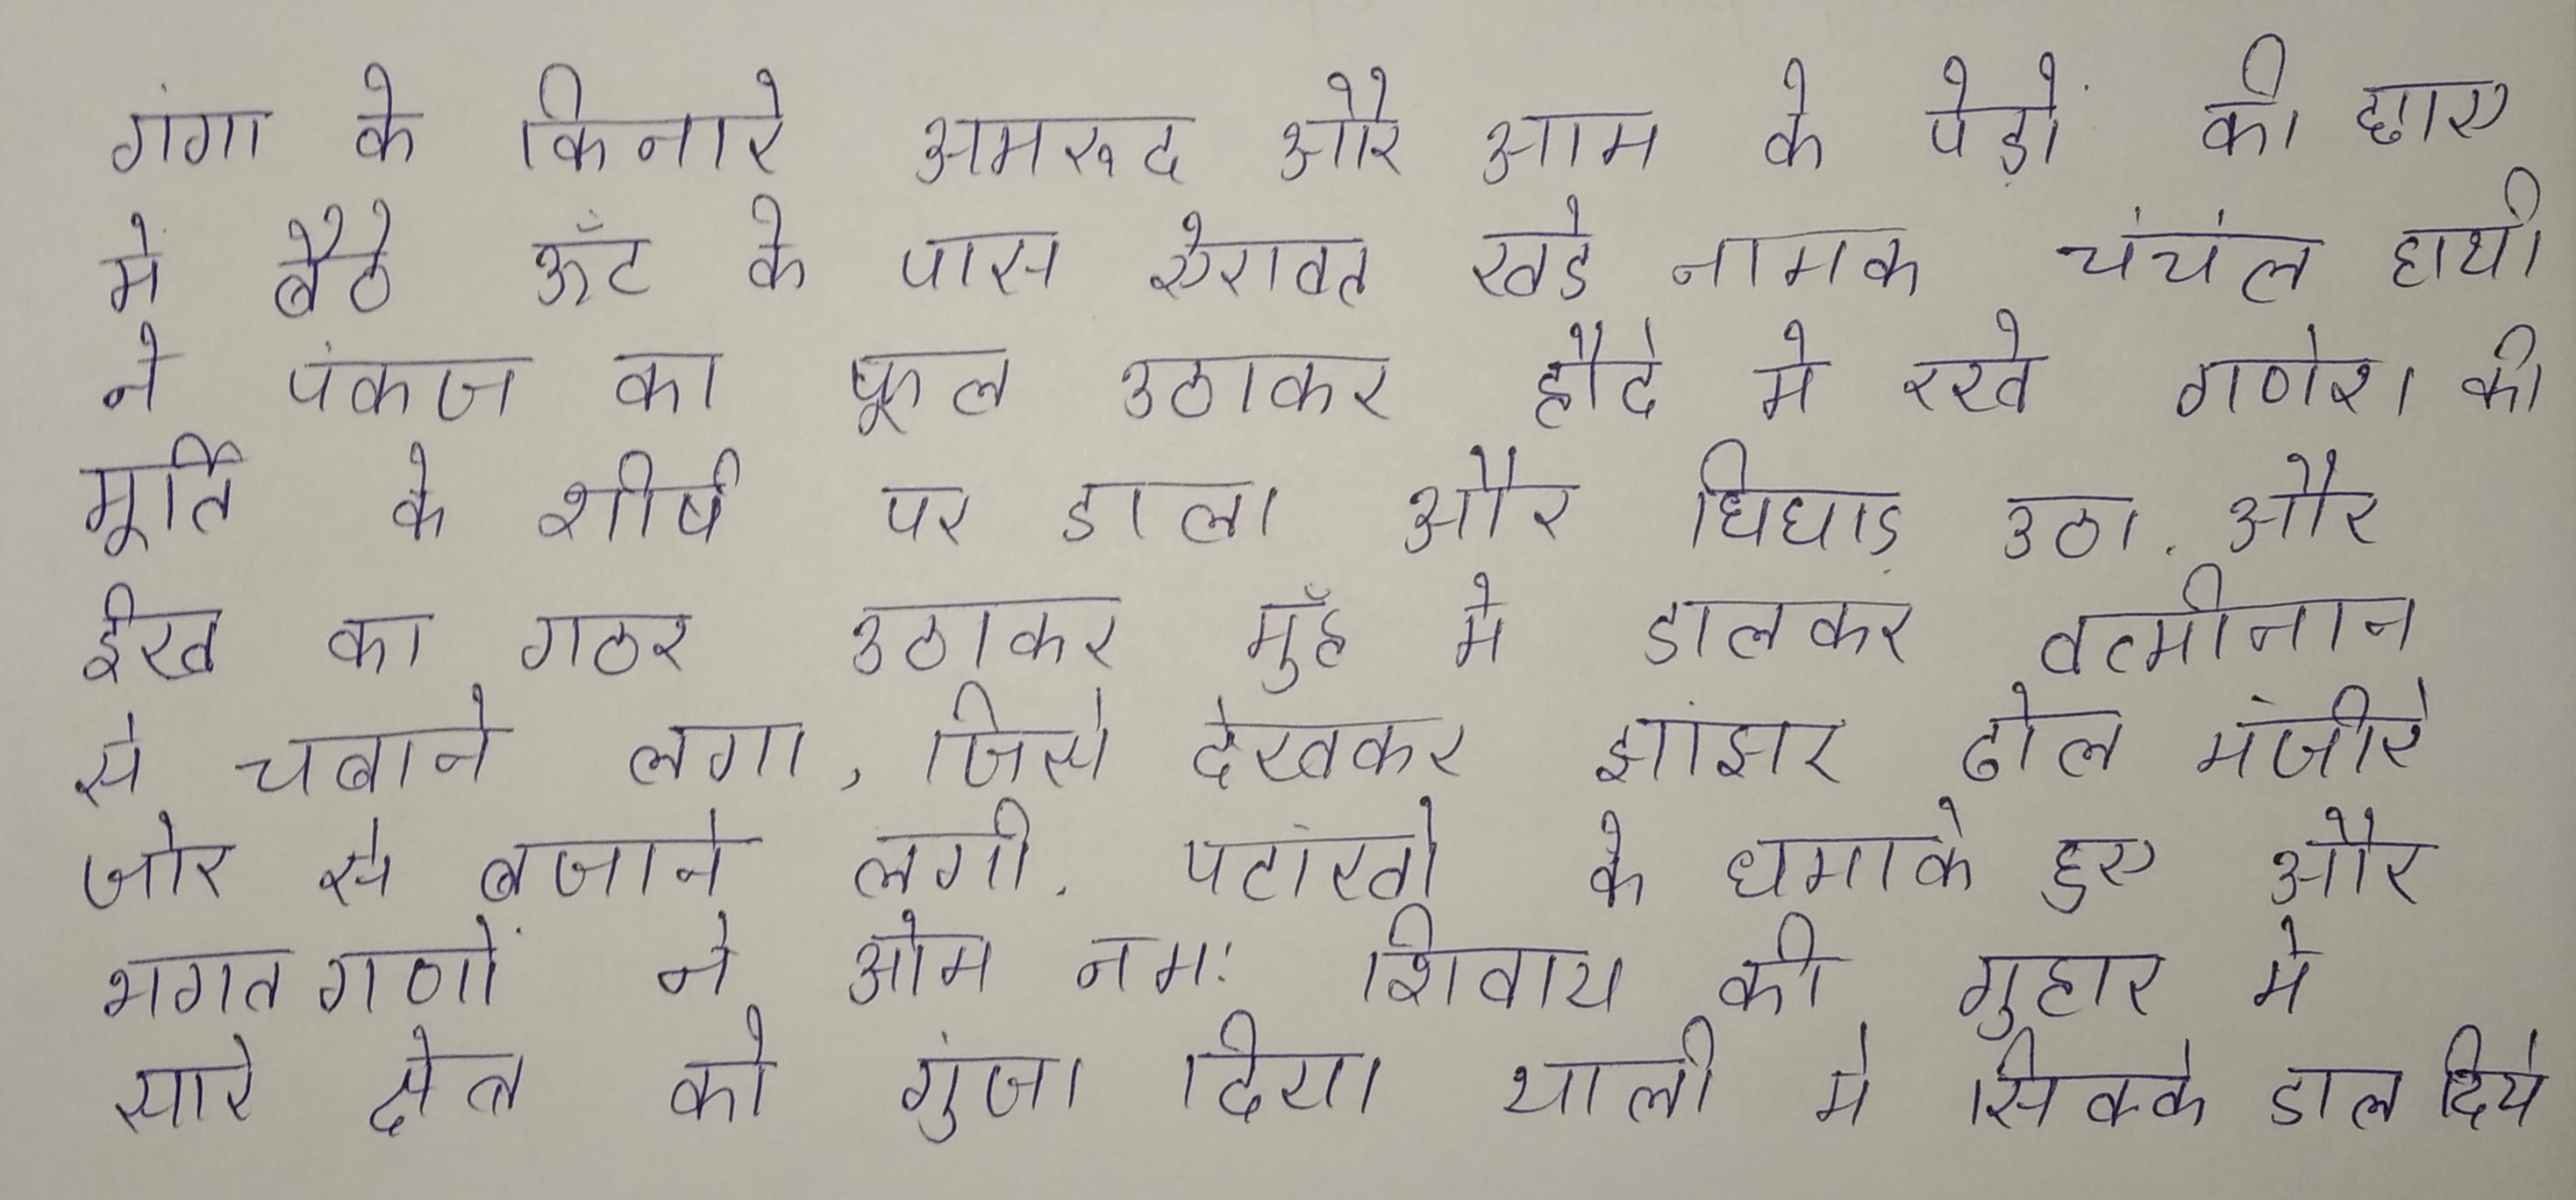 गंगा के किनारे अमरुद और आम के पेड़ों की छाए
में बैठे ऊँट के पास ऐरावत खडे नामक चंचंल हाथी
ने पंकज का फूल उठाकर हौदे मे रखे गणेश की
मूर्ति के शीर्ष पर डाला और घिघाड़ उठा. और
ईख का गठर उठाकर मुँह मे डालकर वत्मीनान
से चबाने लगा, जिसे देखकर झांझर ढोल मंजीरे
जोर से बजाने लगी. पटाखो के धमाके हुए और
भगतगणों ने ओम नमः शिवाय की गुहार मे
सारे क्षेत्र को गुंजा दिया थाली मे सिक्के डाल दिये